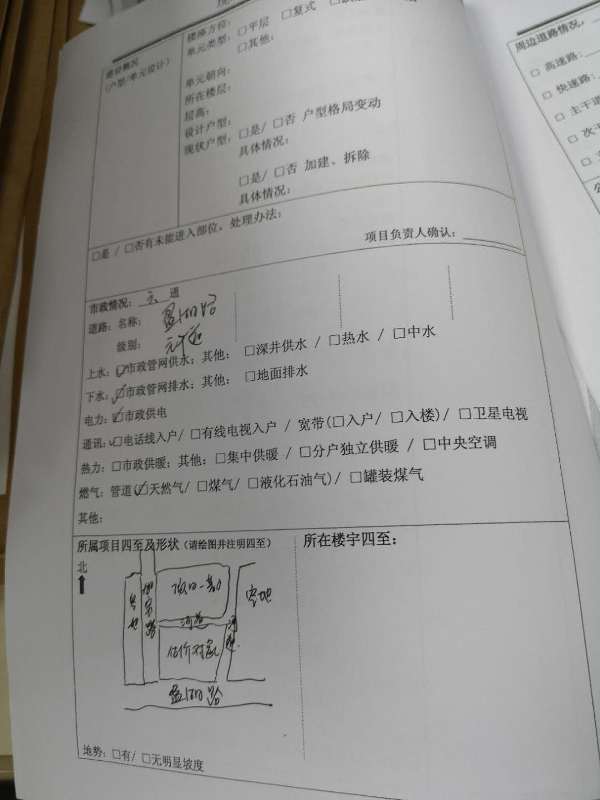 楼座方位:
单元类型: □平层 □复式
□其他:
(户型/单元设计)
单元朝向:
所在楼层:
层高:
设计户型:
现状户型: □是/ □否 户型格局变动
具体情况:
□是/ □否 加建、拆除
具体情况:
□是 / □否有未能进入部位，处理办法:
项目负责人确认:
市政情况: 六 通
道路: 名称:
级别:
上水: ☑市政管网供水; 其他: □深井供水 / □热水 / □中水
下水: ☑市政管网排水; 其他: □地面排水
电力: ☑市政供电
通讯: □电话线入户/ □有线电视入户 / 宽带(□入户/ □入楼)/ □卫星电视
热力: □市政供暖; 其他: □集中供暖 / □分户独立供暖 / □中央空调
燃气: 管道(☑天然气/ □煤气/ □液化石油气)/ □罐装煤气
其他:
所属项目四至及形状 (请绘图并注明四至)
所在楼宇四至:
北
项目一期
空地
河道
估价对象
地势: □有/ □无明显坡度
周边道路情况:
□ 高速路:
□ 快速路:
□ 主干道
□ 次干